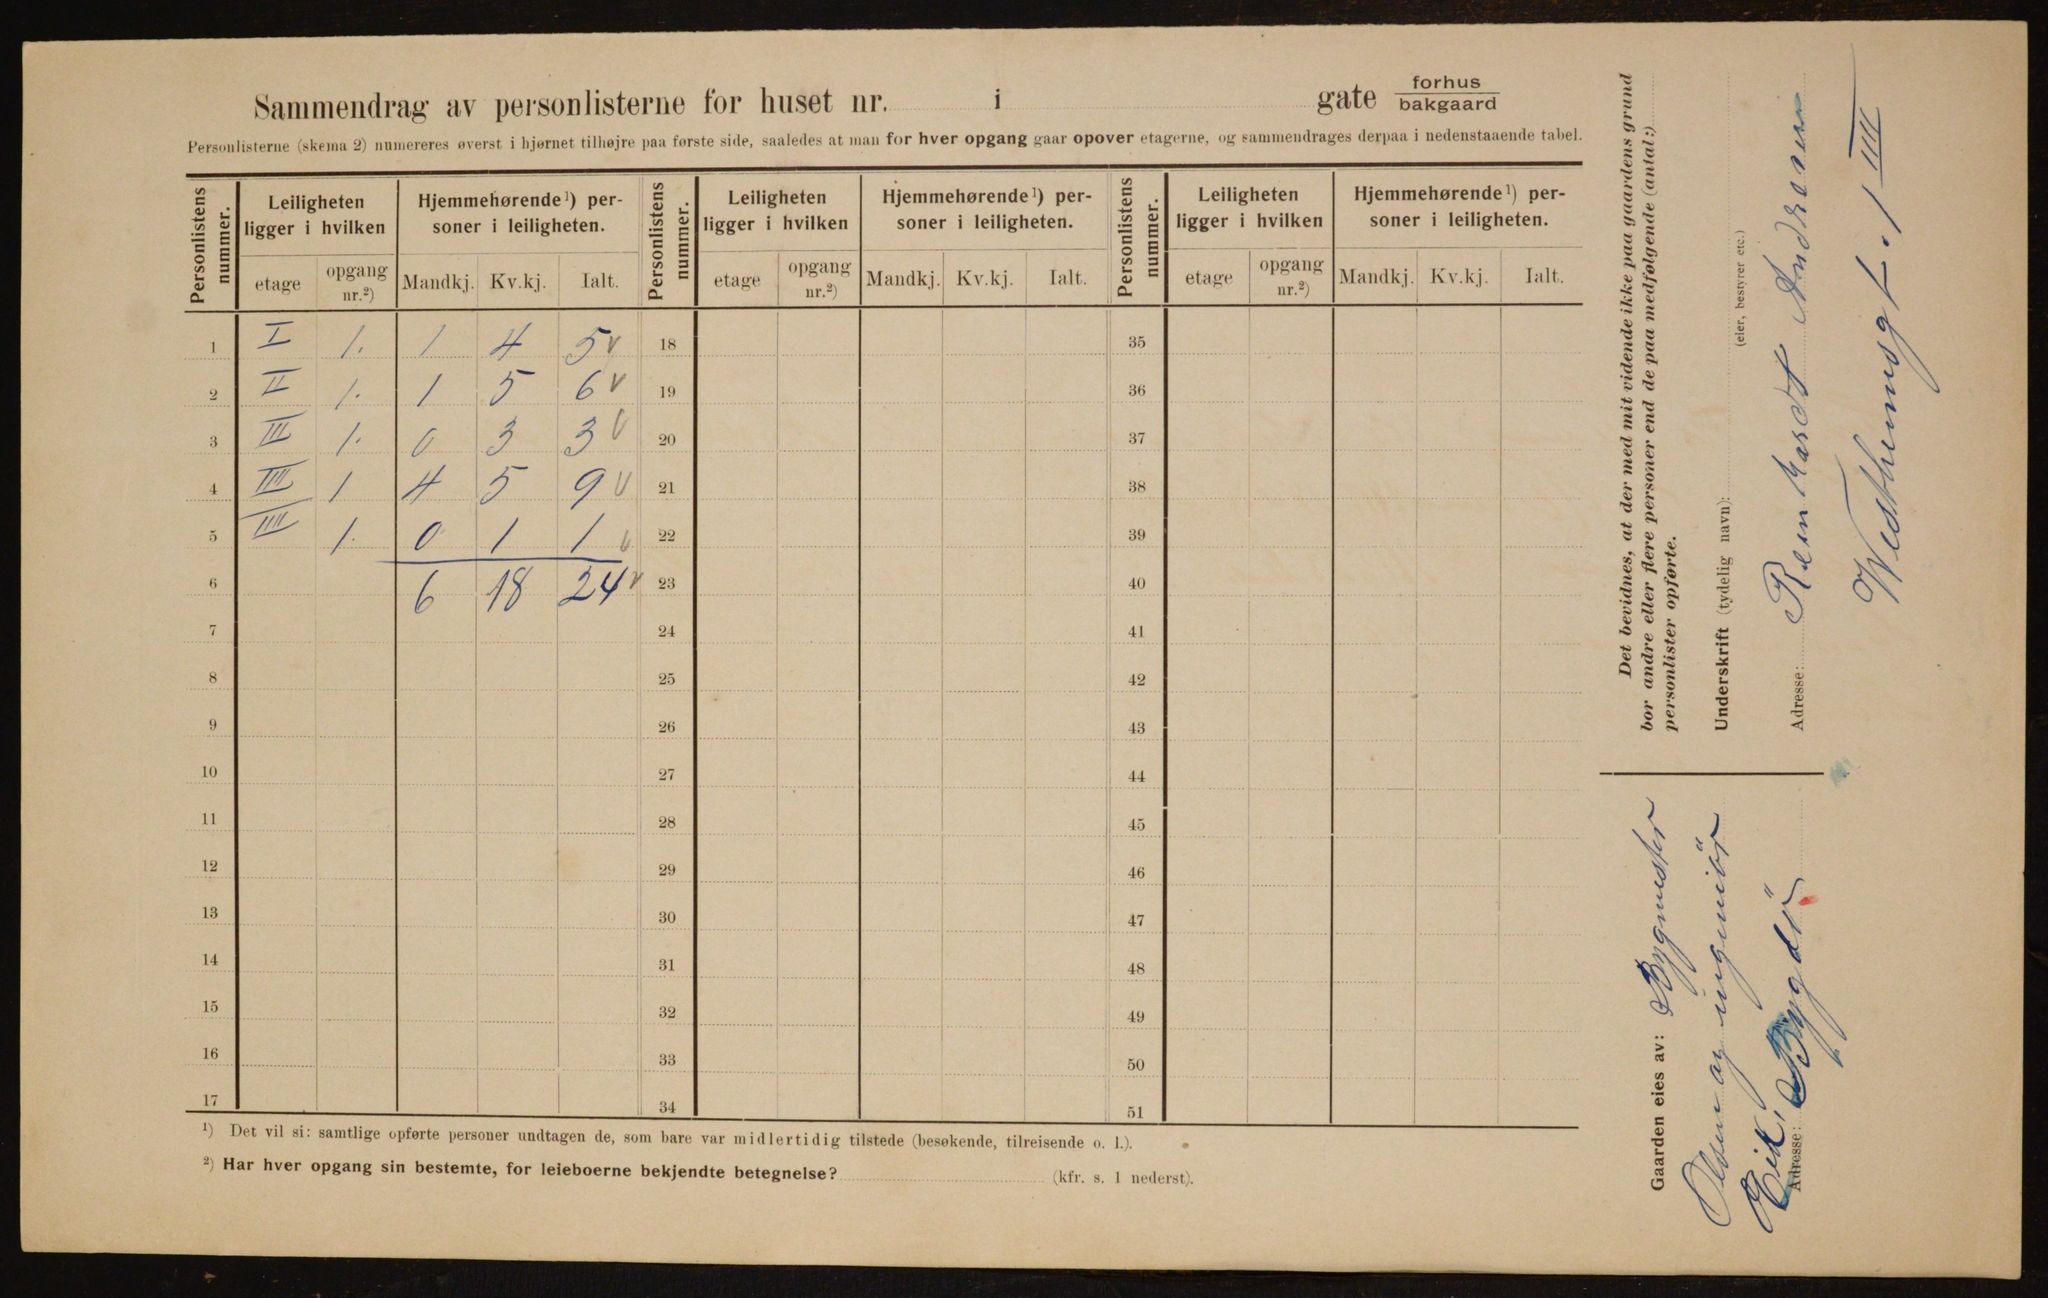 Sammendrag av personlisterne for huset nr. i gate forhus bakgaard
Personlisterne (skema 2) numereres øverst i hjørnet tilhøjre paa første side, saaledes at man for hver opgang gaar opover etagerne, og sammendrages derpaa i nedenstaaende tabel.
Personlistens nummer. Leiligheten ligger i hvilken Hjemmehørende¹) personer i leiligheten. Personlistens nummer. Leiligheten ligger i hvilken Hjemmehørende¹) personer i leiligheten. Personlistens nummer. Leiligheten ligger i hvilken Hjemmehørende¹) personer i leiligheten.
etage opgang nr.²) Mandkj. Kv.kj. Ialt. etage opgang nr.²) Mandkj. Kv.kj. Ialt. etage opgang nr.²) Mandkj. Kv.kj. Ialt.
1 I 1. 1 4 5 v 18 35
2 II 1. 1 5 6 v 19 36
3 III 1. 0 3 3 v 20 37
4 IIII 1 4 5 9 v 21 38
5 IIII 1. 0 1 1 v 22 39
6 6 18 24 v 23 40
7 24 41
8 25 42
9 26 43
10 27 44
11 28 45
12 29 46
13 30 47
14 31 48
15 32 49
16 33 50
17 34 51
¹) Det vil si: samtlige opførte personer undtagen de, som bare var midlertidig tilstede (besøkende, tilreisende o. l.).
²) Har hver opgang sin bestemte, for leieboerne bekjendte betegnelse? (kfr. s. 1 nederst).
Det bevidnes, at der med mit vidende ikke paa gaardens grund
bor andre eller flere personer end de paa medfølgende (antal:)
personlister opførte.
Underskrift (tydelig navn):
(eier, bestyrer etc.)
Adresse: Reinhardt Andresen
Westhumsgt. 1 IIII
Gaarden eies av: Bygmester
Olsen og ingeniör
Eik,
Adresse: Bygdö